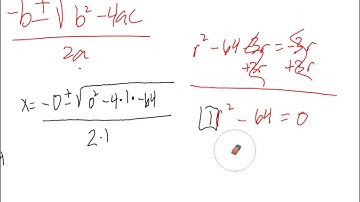 -b ± √b² - 4ac
2a
x = -0 ± √0² - 4·1·-64
2·1
r² - 64 - 2r = -2r
+2r +2r
1r² - 64 = 0